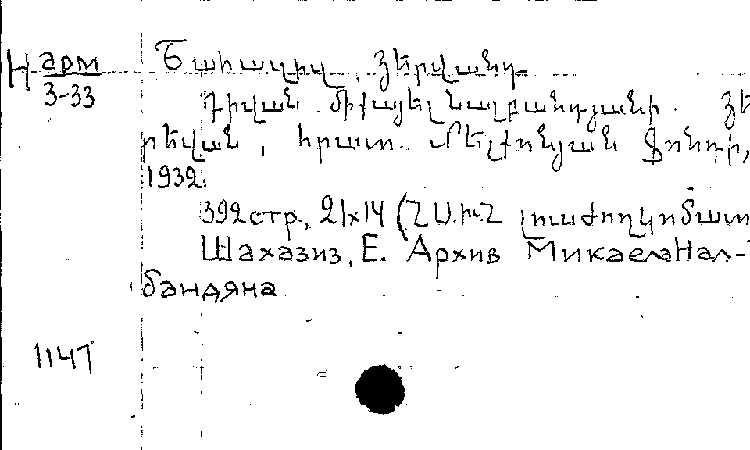 Н арм
3-33
Շահազիզ, Յերվանդ
Դիվան Միքայել Նալբանդյանի. Յե
րեվան, հրատ. Մելքոնյան ֆոնդի,
1932.
392 стр., 21x14 (ՀՍԽՀ լուսժողկոմատ
Шахазиз, Е. Архив Микаела Нал-
бандяна
1147